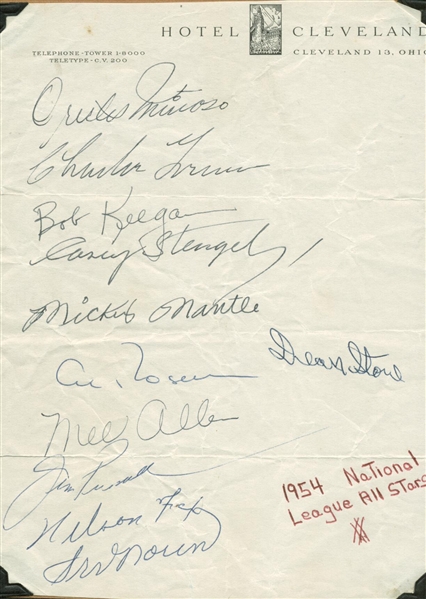 HOTEL CLEVELAND
TELEPHONE-TOWER 1-8000
TELETYPE-C.V. 200
CLEVELAND 13, OHIO
Orestes Minoso
Charlie Grimm
Bob Keegan
Casey Stengel
Mickey Mantle
Dean Stone
Al. Rosen
Mel Allen
Jim
Nelson Fox
Irv Noren
1954 National
League All Stars